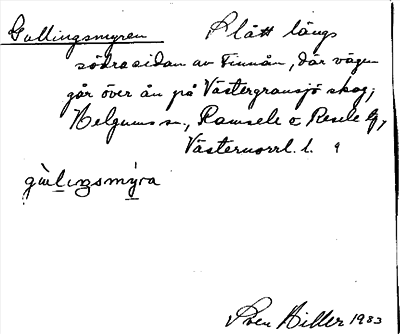 Gullingsmyren Slått längs
södra sidan av Finnån, där vägen
går över ån på Västergransjö skog,
Helgums sn., Ramsele o Resele tg,
Västernorrl. l.
Sven Hiller 1983